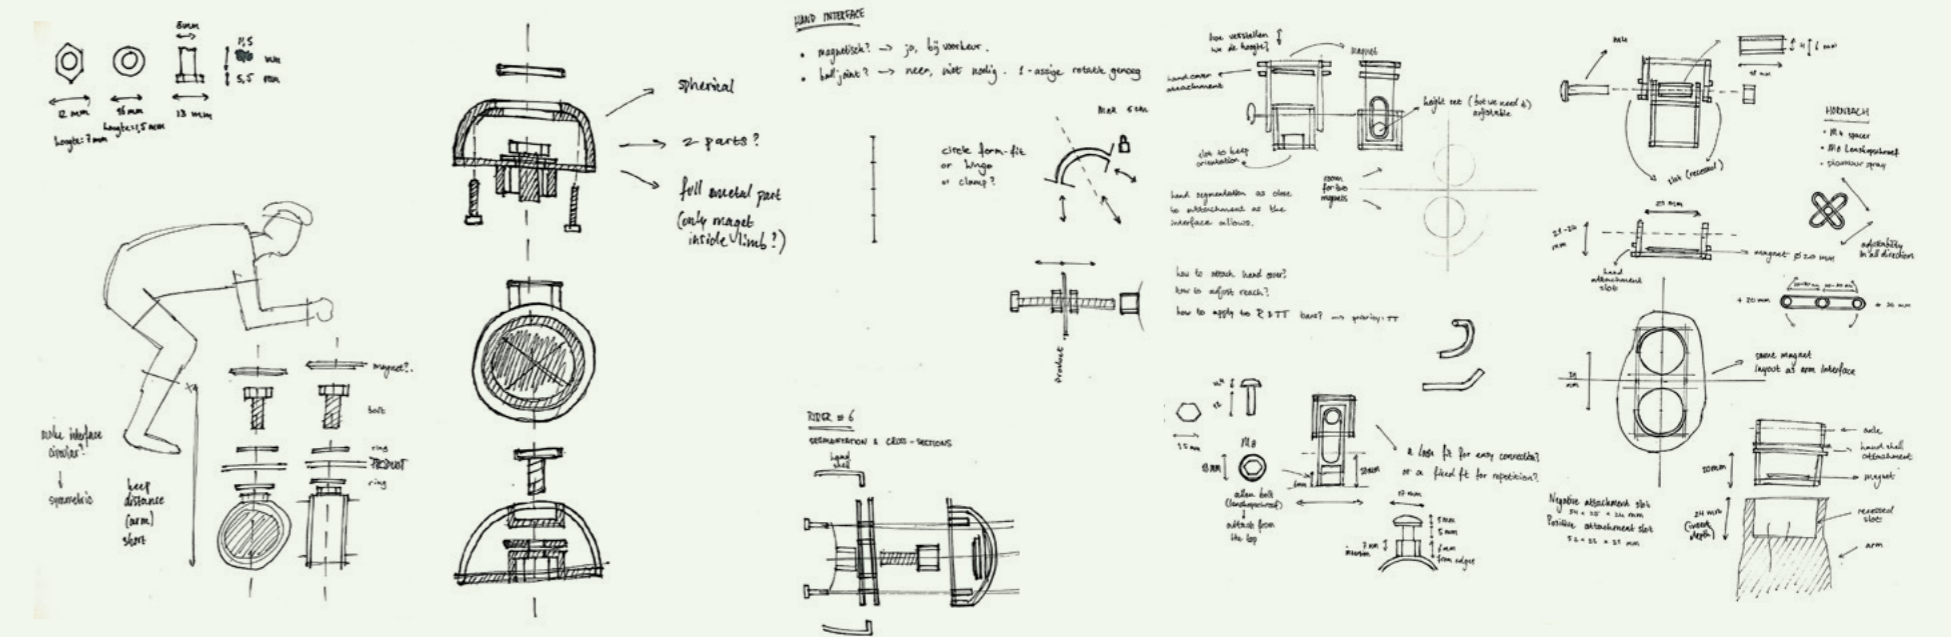 8mm
mm
5,5 mm
12 mm
16 mm
13 mm
hoogte: 7 mm
hoogte: 1,5 mm
make interface
circular?
symmetric
keep
distance
(arm)
short
magnet?
bolt
ring
PRODUCT
ring
spherical
2 parts?
full metal part
(only maget
inside limb?)
HAND INTERFACE
• magnetisch? → ja, bij voorkeur.
• ball joint? → neen, niet nodig. 1-assige rotatie genoeg
max 5 cm
circle form-fit
or hinge
or clamp?
Product
RIDER #6
SEGMENTATION & CROSS-SECTIONS
hand
shell
hoe verstellen
we de hoogte?
magnet
hand cover
attachment
height set (but we need
adjustable
slot to keep
orientation
room
for two
magnets
hand segmentation as close
to attachment as the
interface allows.
how to attach hand cover?
how to adjust reach?
how to apply to R & TT bars? → priority: TT
M8
13 mm
allen bolt
(lenskopschroef)
attach from
the top
a loose fit for easy connection?
or a fixed fit for repetition?
17 mm
5 mm
5 mm
from edges
7 mm
M4
6 mm
slot (recessed)
HORNBACH
• M4 spacer
• M8 Lenskopschroef
adjustability
in all direction
magnet Ø 20 mm
hand
attachment
slot
+ 20 mm
same magnet
layout as arm interface
axle
hand shell
attachment
magnet
20 mm
24 mm
(insert
depth)
recessed
slot
arm
Negative attachment slot
Positive attachment slot